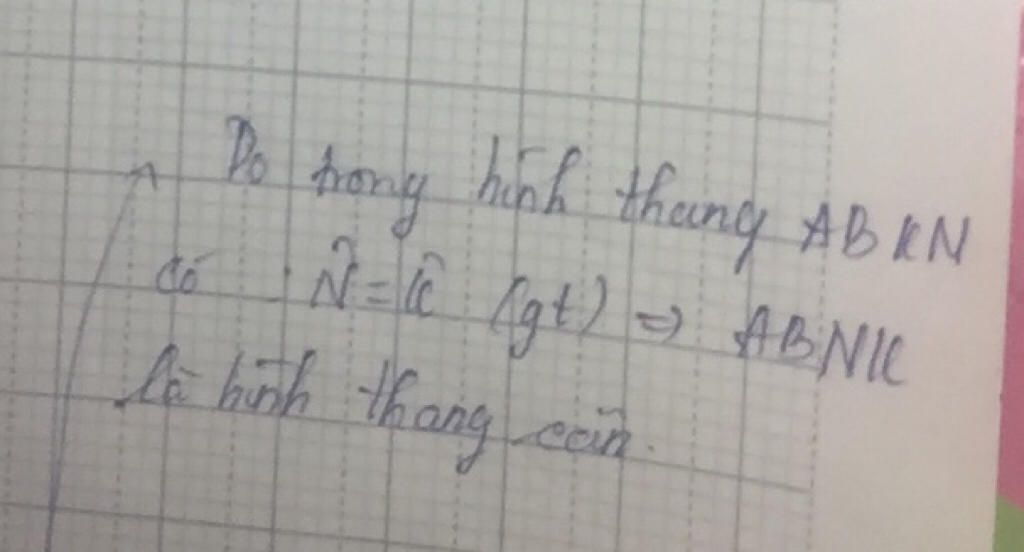 Do trong hình thang ABKN
có N̂ = K̂ (gt) => ABNK
là hình thang cân.